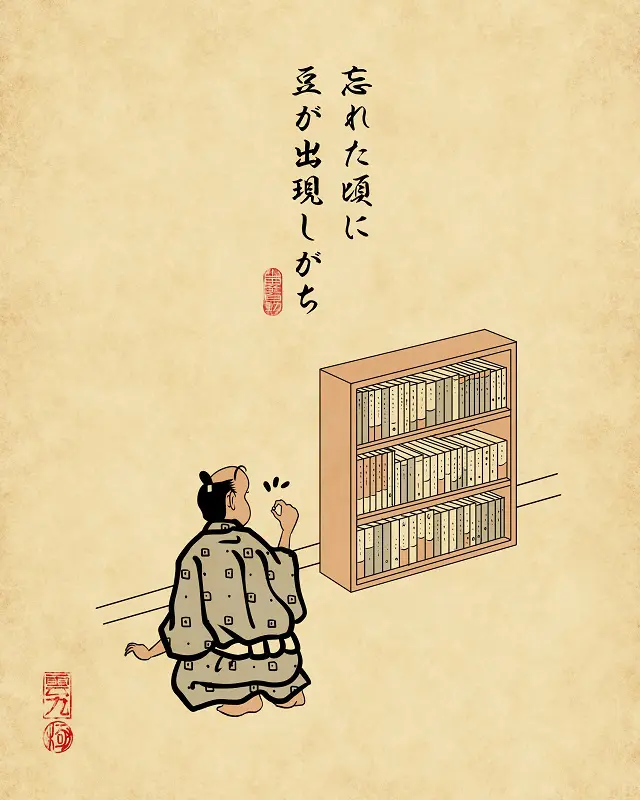 忘れた頃に
豆が出現しがち